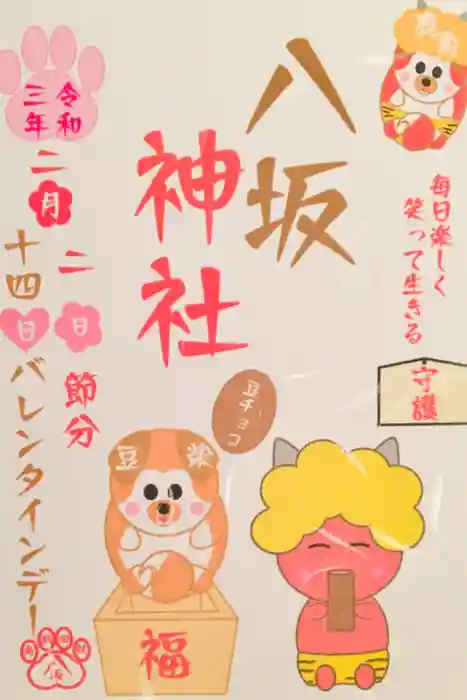 八坂
神社
毎日楽しく
笑って生きる
守護
令和
三年
二月
二日
節分
十四日
バレンタインデー
豆チョコ
豆柴
福
八坂